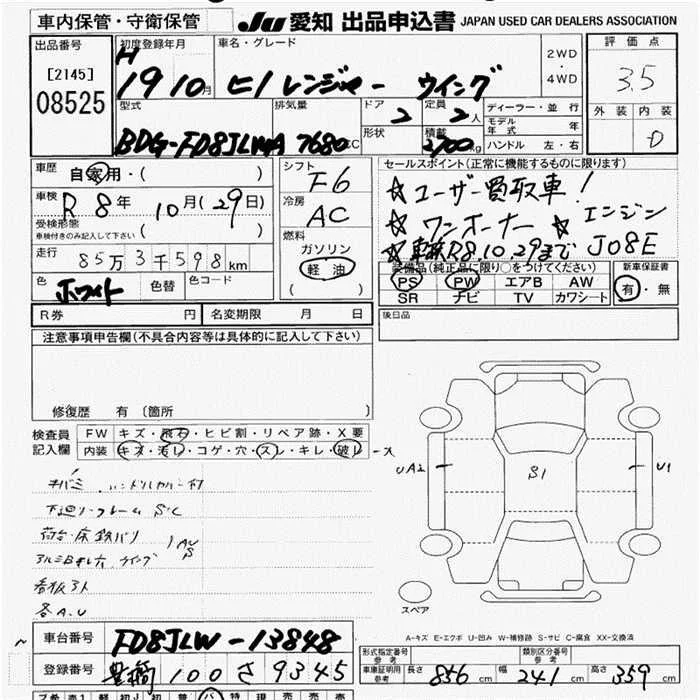 車内保管・守衛保管
JU 愛知 出品申込書 JAPAN USED CAR DEALERS ASSOCIATION
出品番号
[2145]
08525
初度登録年月
H
19 10月
車名・グレード
ヒノレンジャー ウイング
2WD
・
4WD
評価点
3.5
外装 内装
D
型式
BDG-FD8JLWA
排気量
7680CC
ドア
2
形状
定員
2人
積載
2700kg
ディーラー・並行
モデル年式 年
ハンドル 左・右
車歴
自家用・( )
車検
R 8年 10月(29日)
受検形態
車検付きのみ記入して下さい
( )
走行
85万3千598km
色
ホワイト
色替
色コード
シフト
F6
冷房
AC
燃料
ガソリン
軽油
( )
セールスポイント(正常に機能するものに限ります)
☆ユーザー買取車!
☆ワンオーナー ☆エンジン
☆車検R8.10.29まで J08E
装備品(純正品に限り○をつけてください)
PS PW エアB AW
SR ナビ TV カワシート
新車保証書
有・無
R券 円 名変期限 月 日
後日品
注意事項申告欄(不具合内容等は具体的に記入して下さい)
修復歴 有 (箇所 )
検査員記入欄
FW キズ・飛石・ヒビ割・リペア跡・X要
内装 キズ・汚レ・コゲ・穴・スレ・キレ・破レ
下廻り・フレーム S・C
荷台・床鉄バリ
各A.U
UA2
S1
U1
スペア
A-キズ E-エクボ U-凹み W-補修跡 S-サビ C-腐食 XX-交換済
車台番号
FD8JLW-13848
登録番号
豊橋 100 さ 9345
形式指定番号
参考
類別区分番号
参考
車庫証明用
参考
長さ 856cm 幅 241cm 高さ 359cm